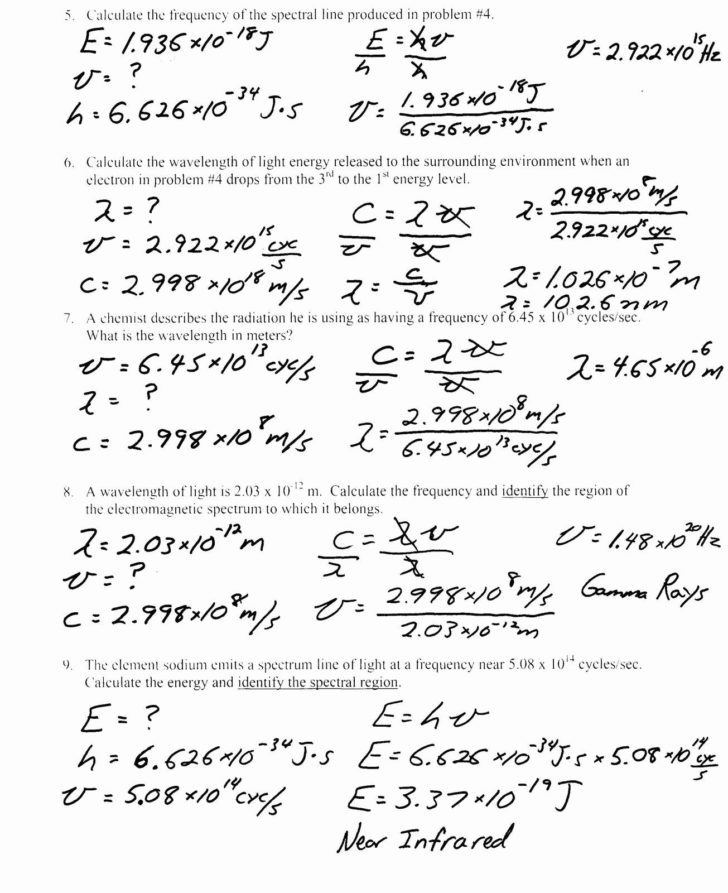 5. Calculate the frequency of the spectral line produced in problem #4.
E = 1.936 x10⁻¹⁸J
E/h = hν/h
ν = 2.922 x10¹⁵Hz
ν = ?
h = 6.626x10⁻³⁴ J·s
ν = 1.936x10⁻¹⁸J / 6.626x10⁻³⁴J·s
6. Calculate the wavelength of light energy released to the surrounding environment when an
electron in problem #4 drops from the 3rd to the 1st energy level.
λ = ?
C/ν = λν/ν
λ = 2.998x10⁸m/s / 2.922x10¹⁵ cyc/s
ν = 2.922x10¹⁵ cyc/s
c = 2.998 x10¹⁸ m/s
λ = c/ν
λ = 1.026x10⁻⁷m
λ = 102.6 nm
7. A chemist describes the radiation he is using as having a frequency of 6.45 x 10¹³ cycles/sec.
What is the wavelength in meters?
ν = 6.45x10¹³ cyc/s
C/ν = λν/ν
λ = 4.65x10⁻⁶ m
λ = ?
c = 2.998 x10⁸m/s
λ = 2.998x10⁸m/s / 6.45x10¹³cyc/s
8. A wavelength of light is 2.03 x 10⁻¹² m. Calculate the frequency and identify the region of
the electromagnetic spectrum to which it belongs.
λ = 2.03x10⁻¹²m
C/λ = λν/λ
ν = 1.48x10²⁰Hz
ν = ?
c = 2.998x10⁸m/s
ν = 2.998x10⁸m/s / 2.03x10⁻¹²m
Gamma Rays
9. The element sodium emits a spectrum line of light at a frequency near 5.08 x 10¹⁴ cycles/sec.
Calculate the energy and identify the spectral region.
E = ?
E = hν
h = 6.626x10⁻³⁴J·s
E = 6.626 x10⁻³⁴J·s x 5.08x10¹⁴ cyc/s
ν = 5.08 x10¹⁴cyc/s
E = 3.37x10⁻¹⁹J
Near Infrared